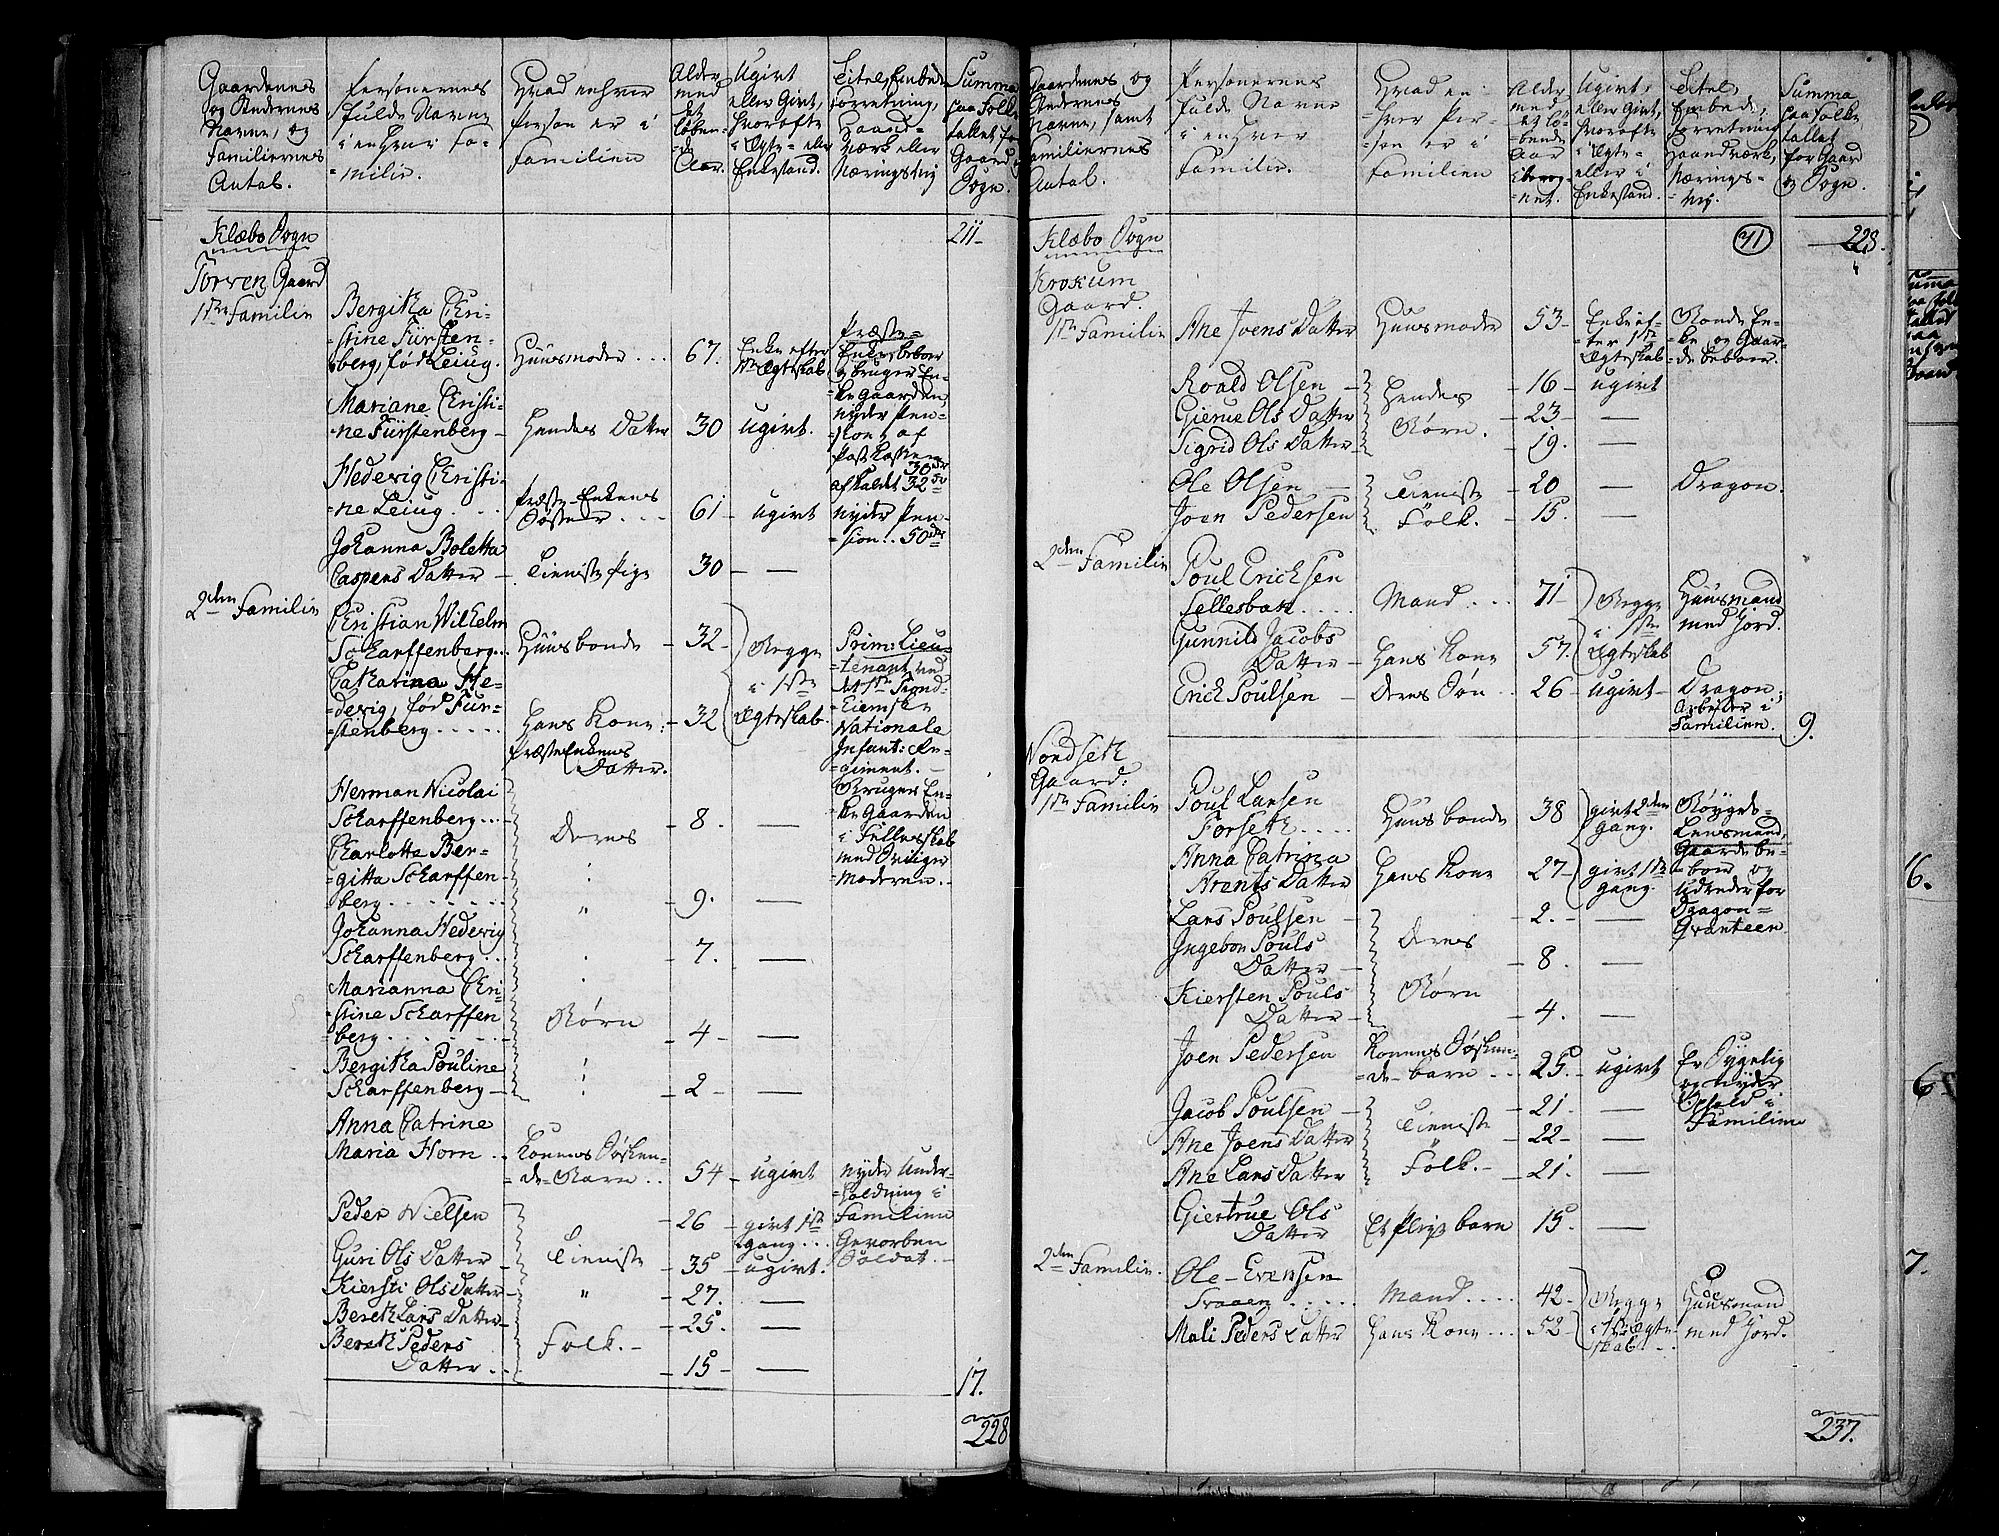 Gaardenes
og Stedernes
Navne, og
Familiernes
Antal.
Personernes
fulde Navne
i enhver Fa-
-milie.
Hvad enhver
Person er i
Familien
Alder
med
det
løben-
-de
Aar.
Ugivt
eller Givt,
hvorofte
i Ægte- eller
Enkestand.
Titel, Embede
Forretning,
Haand-
værk eller
Næringsvej
Summa
paa Folke
tallet for
Gaard og
Sogn.
Klæbo Sogn
211-
Torven Gaard
1ste Familie
Bergitha Chri-
-stine Fürsten-
berg, fød Leiug.
Huusmoder ...
67.
Enke efter
1ste Ægteskab
Præste-
Enke, beboer
og bruger En-
ke Gaarden,
nyder Pen-
-sion af
Post Cassen
30 rdr
afskaldet 32
Mariane Christi-
-ne Fürstenberg -
Hendes Datter
30
ugivt.
Hedevig Christi-
-ne Leiug. . .
Præste-Enkens
Søster . . .
61-
ugivt
nyder Pen-
-sion. 50 rdr
Johanna Boletta
Caspers Datter -
Tieniste Pige
30
2den Familie
Christian Wilhelm
Scharffenberg...
Huusbonde -
32-
Begge
i 1ste
Ægteskab.
Prim: Lieu-
-tenant ved
det 1ste Trond-
-hiemske
Nationale
Infant: Re-
-giment. -
Catharina He-
-devig, fød Fur-
-stenberg .....
Hans Kone,
Præste Enkens
Datter.
32
Bruger En-
-ke Gaarden
i Fellesskab
med Sviger
moderen. -
Herman Nicolai
Scharffenberg ...
Deres
8.
Charlotte Ber-
-gitta Scharffen-
-berg . . . . . . .
9.
Johanna Hedevig
Scharffenberg ...
7.
Marianna Chri-
-stine Scharffen
-berg . . . . . .
Børn
4-
Bergitha Pouline
Scharffenberg -
2-
Anna Catrine
Maria Horn ..
Konens Søsken-
-de-Barn ..
54-
ugivt
nyder Under-
-holdning i
Familien
Peder Nielsen
Tieniste
Folk. -
26
givt 1ste
gang ...
Gevorben
Soldat. -
Guri Ols Datter -
35-
ugivt.
Kiersti Ols Datter-
27.
Bereth Lars Datter-
25-
Bereth Peders
Datter ..
15-
17.
228
Gaardenes og
Stedernes
Navne, samt
Familiernes
Antal.
Personernes
fulde Navne
i enhver
Familie.
Hvad en-
-hver Per-
-son er i
Familien
Alder
med
det lø-
bende
Aar
ibereg-
-net.
Ugivt,
eller Givt,
hvorofte
i Ægte-
eller i
Enkestand.
Titel,
Embede,
Forretning
Haandværk,
Nærings-
-vej.
Summa
paa Folke
tallet
for Gaard
og Sogn.
Klæbo Sogn
71
228.
Krokum
Gaard.
1ste Familie
Ane Joens Datter
Huusmoder
53-
Enke ef-
-ter 1ste
Ægteskab
Bonde En-
-ke og Gaar-
-de beboer.
Roald Olsen -
Hendes
Børn.
-16-
ugivt
Gierue Ols Datter
-23-
Sigrid Ols Datter-
-19.
Ole Olsen -
Tieniste
Folk.
-20
Dragon.
Joen Pedersen
-15.
2den Familie
Poul Ericksen
Sellesbak ....
Mand . . .
71-
Begge
i 1ste
Ægteskab
Huusmand
med Jord.
Gunnild Jacobs
Datter -
Hans Kone
57.
Erick Poulsen -
Deres Søn ..
26-
ugivt-
Dragon,
Arbeider i
Familien.
9.
Nordseth
Gaard:
1ste Familie
Poul Larsen
Forseth. ....
Huusbonde
38
givt 2den
gang.
Bøygde-
Lensmand,
Gaarde be-
-boer og
Udreder for
Dragon-
Qvarteer.
Anna Catrina
Arents Datter
Hans Kone
27-
givt 1ste
gang.
Lars Poulsen -
Deres
Børn
2.-
Ingebor Pouls
Datter -
8.
Kiersten Pouls
Datter -
4.
Joen Pedersen
Konens Søsken-
-de-barn ...
25.
ugivt
Er Sygelig
og nyder
Ophold i
Familien
Jacob Poulsen -
Tieniste
Folk.-
-21-
Ane Joens Datter
-22-
Ane Lars Datter
-21.
Giertrue Ols
Datter
Et Pleye barn
15.
2den Familie.
Ole Evensen
Svaaen .....
Mand ....
42-
Begge
i 1ste Ægte
skab . .
Huusmand
med Jord.
Mali Peders Datter
Hans Kone ...
52-
237.
16.
7.